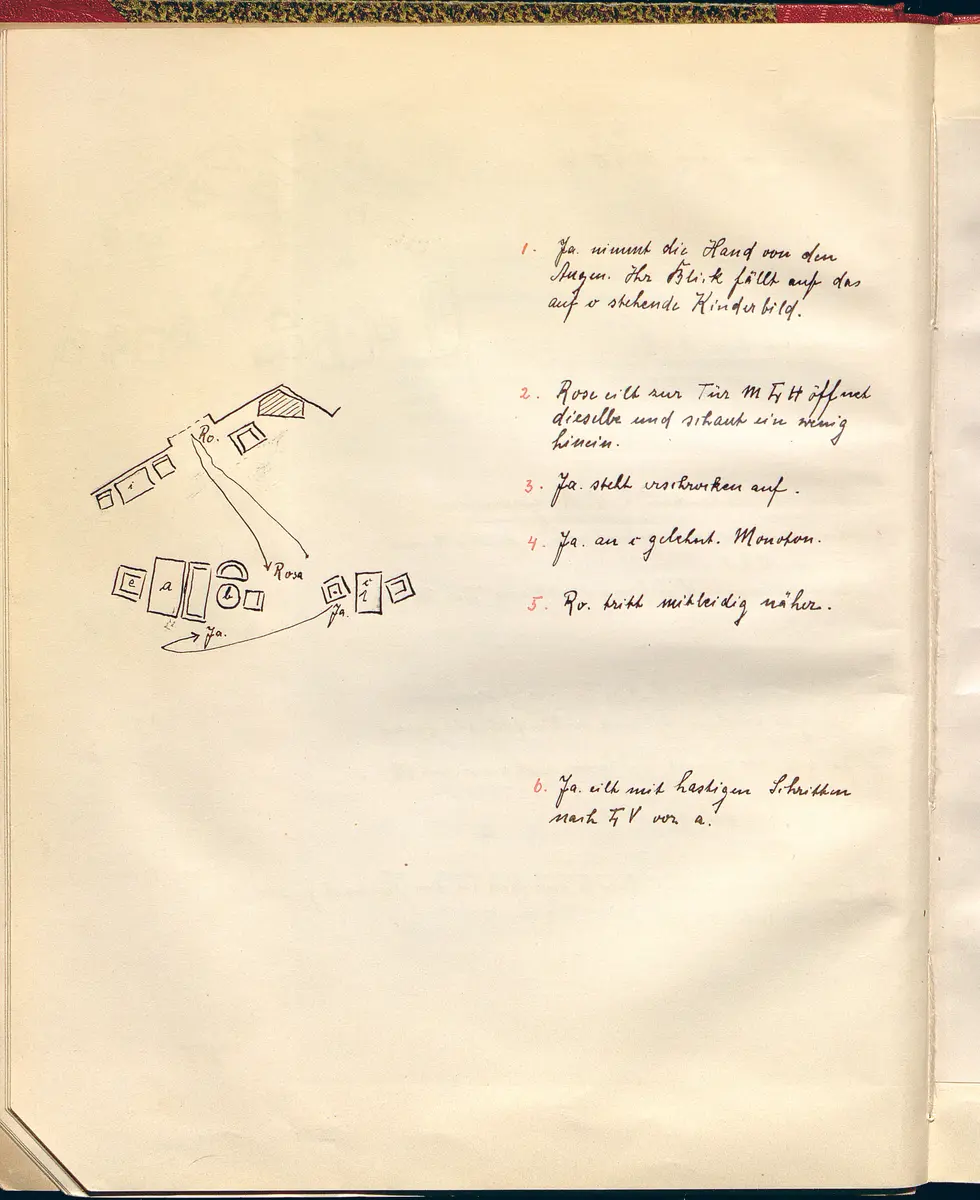 1. Ja. nimmt die Hand von den
Augen. Ihr Blick fällt auf das
auf v stehende Kinderbild.
2. Rose eilt zur Tür M H öffnet
dieselbe und schaut ein wenig
hinein.
3. Ja. steht erschrocken auf.
4. Ja. an i gelehnt. Monoton.
5. Ro. tritt mitleidig näher.
6. Ja. eilt mit hastigen Schritten
nach V vor a.
Ro.
i
Rosa
e
a
b
i
Ja.
Ja.